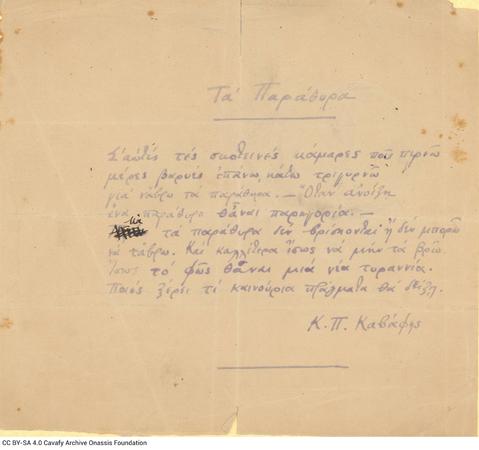 Τα Παράθυρα
Σ' αυτές τες σκοτεινές κάμαρες, που περνώ
μέρες βαρυές επάνω κάτω τριγυρνώ
για νάβρω τα παράθυρα. — Όταν ανοίξη
ένα παράθυρο θάναι παρηγορία. —
Μα τα παράθυρα δεν βρίσκονται ή δεν μπορώ
να τάβρω. Και καλλίτερα ίσως να μην τα βρω.
Ίσως το φως θάναι μια νέα τυραννία.
Ποιός ξέρει τι καινούρια πράγματα θα δείξη.
Κ. Π. Καβάφης
CC BY-SA 4.0 Cavafy Archive Onassis Foundation